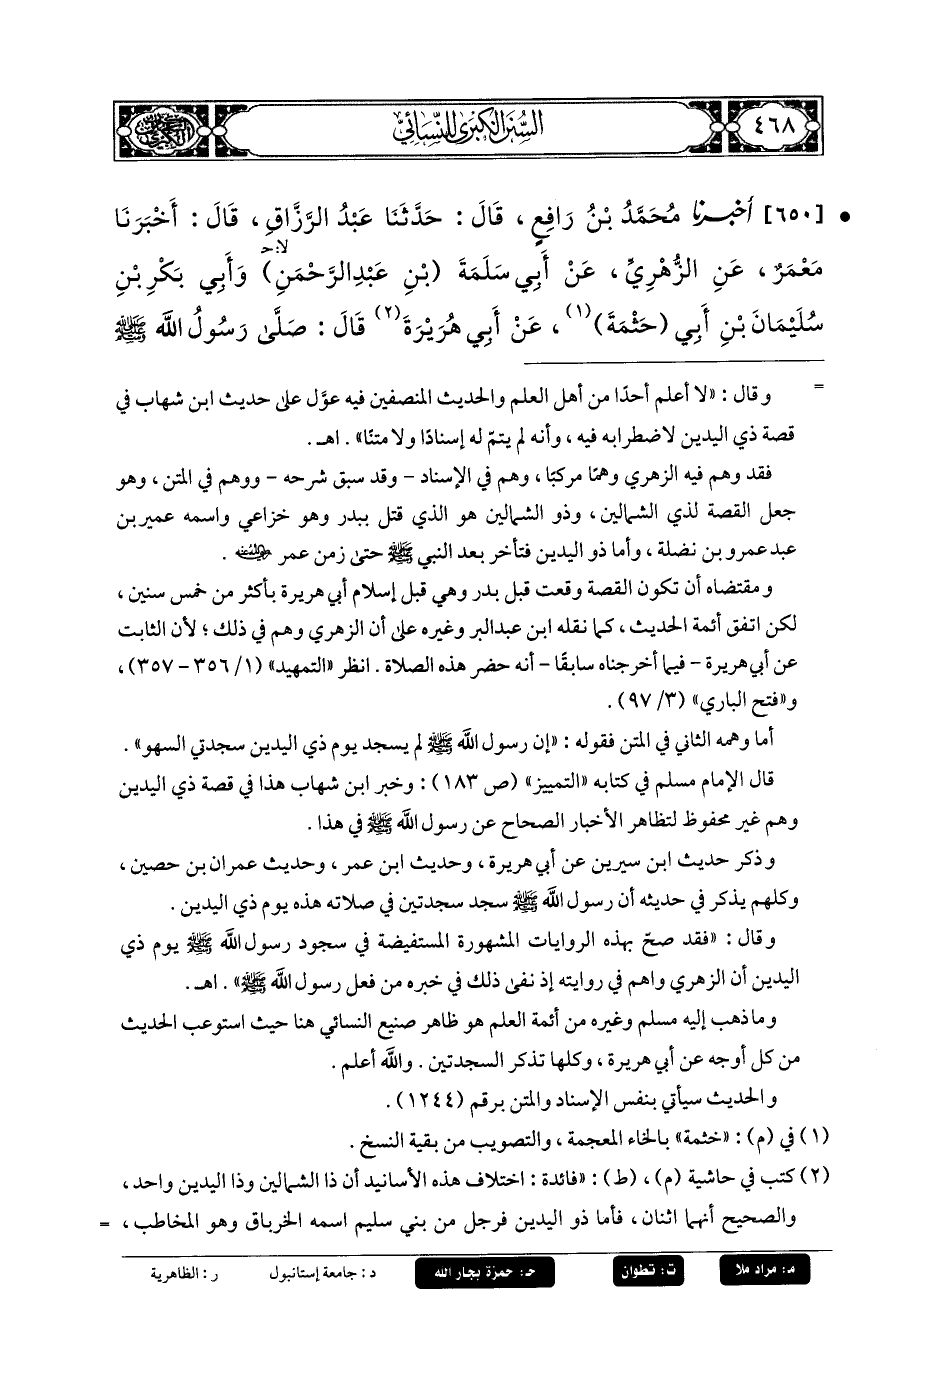 ٤٦٨
السنن الكبرى للنسائي
• [٦٥٠] أَخْبَرَنَا مُحَمَّدُ بْنُ رَافِعٍ ، قَالَ : حَدَّثَنَا عَبْدُ الرَّزَّاقِ ، قَالَ : أَخْبَرَنَا
مَعْمَرٌ ، عَنِ الزُّهْرِيِّ ، عَنْ أَبِي سَلَمَةَ (بْنِ عَبْدِالرَّحْمَنِ) لا:حـ وَأَبِي بَكْرِ بْنِ
سُلَيْمَانَ بْنِ أَبِي (حَثْمَةَ)(١) ، عَنْ أَبِي هُرَيْرَةَ(٢) قَالَ : صَلَّىٰ رَسُولُ اللَّه ﷺ
= وقال : «لا أعلم أحدًا من أهل العلم والحديث المنصفين فيه عوَّل على حديث ابن شهاب في
قصة ذي اليدين لاضطرابه فيه ، وأنه لم يتمّ له إسنادًا ولا متنًا» . اهـ .
فقد وهم فيه الزهري وهمًا مركبًا ، وهم في الإسناد - وقد سبق شرحه - ووهم في المتن ، وهو
جعل القصة لذي الشمالين ، وذو الشمالين هو الذي قتل ببدر وهو خزاعي واسمه عمير بن
عبد عمرو بن نضلة ، وأما ذو اليدين فتأخر بعد النبي ﷺ حتى زمن عمر رضي الله عنه .
ومقتضاه أن تكون القصة وقعت قبل بدر وهي قبل إسلام أبي هريرة بأكثر من خمس سنين ،
لكن اتفق أئمة الحديث ، كما نقله ابن عبدالبر وغيره على أن الزهري وهم في ذلك ؛ لأن الثابت
عن أبي هريرة - فيما أخرجناه سابقًا - أنه حضر هذه الصلاة . انظر «التمهيد» (١/ ٣٥٦ - ٣٥٧) ،
و«فتح الباري» (٣/ ٩٧) .
أما وهمه الثاني في المتن فقوله : «إن رسول اللَّه ﷺ لم يسجد يوم ذي اليدين سجدتي السهو» .
قال الإمام مسلم في كتابه «التمييز» (ص ١٨٣) : وخبر ابن شهاب هذا في قصة ذي اليدين
وهم غير محفوظ لتظاهر الأخبار الصحاح عن رسول اللَّه ﷺ في هذا .
وذكر حديث ابن سيرين عن أبي هريرة ، وحديث ابن عمر ، وحديث عمران بن حصين ،
وكلهم يذكر في حديثه أن رسول اللَّه ﷺ سجد سجدتين في صلاته هذه يوم ذي اليدين .
وقال : «فقد صحّ بهذه الروايات المشهورة المستفيضة في سجود رسول اللَّه ﷺ يوم ذي
اليدين أن الزهري واهم في روايته إذ نفى ذلك في خبره من فعل رسول اللَّه ﷺ» . اهـ .
وما ذهب إليه مسلم وغيره من أئمة العلم هو ظاهر صنيع النسائي هنا حيث استوعب الحديث
من كل أوجه عن أبي هريرة ، وكلها تذكر السجدتين . واللَّه أعلم .
والحديث سيأتي بنفس الإسناد والمتن برقم (١٢٤٤) .
(١) في (م) : «خثمة» بالخاء المعجمة ، والتصويب من بقية النسخ .
(٢) كتب في حاشية (م) ، (ط) : «فائدة : اختلاف هذه الأسانيد أن ذا الشمالين وذا اليدين واحد ،
والصحيح أنهما اثنان ، فأما ذو اليدين فرجل من بني سليم اسمه الخرباق وهو المخاطب ، =
م: مراد ملا ت: تطوان حـ: حمزة بجار الله د: جامعة إستانبول ر: الظاهرية